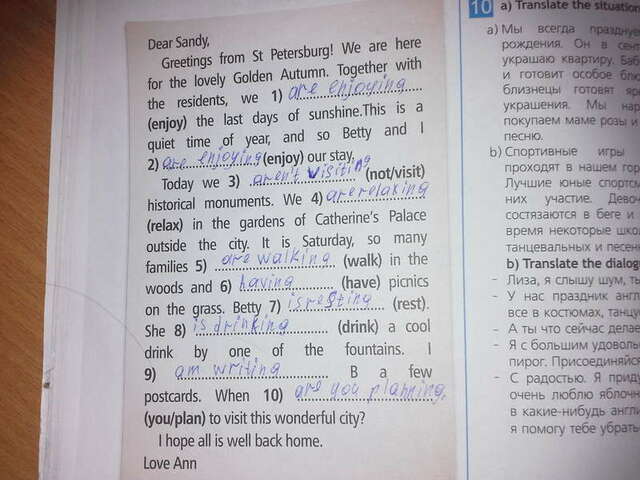 Dear Sandy,
Greetings from St Petersburg! We are here
for the lovely Golden Autumn. Together with
the residents, we 1) are enjoying
(enjoy) the last days of sunshine.This is a
quiet time of year, and so Betty and I
2) are enjoying (enjoy) our stay.
Today we 3) aren't visiting (not/visit)
historical monuments. We 4) are relaxing
(relax) in the gardens of Catherine's Palace
outside the city. It is Saturday, so many
families 5) are walking (walk) in the
woods and 6) having (have) picnics
on the grass. Betty 7) is resting (rest).
She 8) is drinking (drink) a cool
drink by one of the fountains. I
9) am writing B a few
postcards. When 10) are you planning
(you/plan) to visit this wonderful city?
I hope all is well back home.
Love Ann
10 a) Translate the situation
a) Мы всегда празднуе
рождения. Он в
украшаю квартиру.
и готовит особое
близнецы готовят
украшения. Мы
покупаем маме розы и
песню.
b) Спортивные игры
проходят в нашем
Лучшие юные
них участие.
состязаются в беге и
время некоторые
танцевальных и
b) Translate the
- Лиза, я слышу шум,
- У нас праздник
все в костюмах,
- А ты что сейчас
- Я с большим
пирог.
- С радостью. Я
очень люблю
в какие-нибудь
я помогу тебе